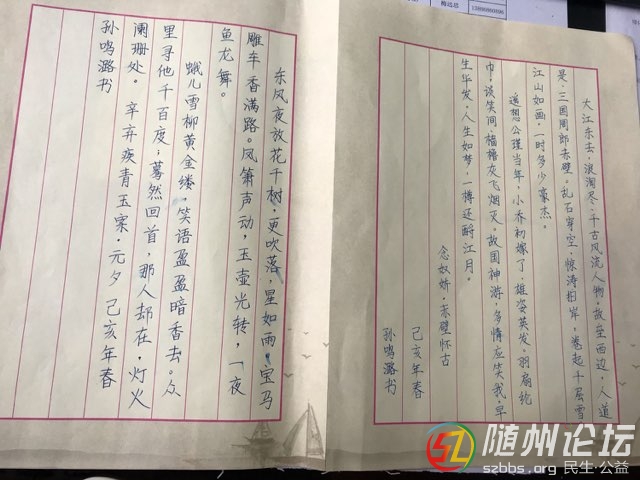 大江东去，浪淘尽，千古风流人物。故垒西边，人道
是，三国周郎赤壁。乱石穿空，惊涛拍岸，卷起千层雪
江山如画，一时多少豪杰。
遥想公瑾当年，小乔初嫁了，雄姿英发。羽扇纶
巾，谈笑间，樯橹灰飞烟灭。故国神游，多情应笑我，早
生华发，人生如梦，一樽还酹江月。
念奴娇·赤壁怀古
己亥年春
孙鸣潞书
东风夜放花千树，更吹落，星如雨。宝马
雕车香满路。凤箫声动，玉壶光转，一夜
鱼龙舞。
蛾儿雪柳黄金缕，笑语盈盈暗香去。众
里寻他千百度；蓦然回首，那人却在，灯火
阑珊处。 辛弃疾青玉案·元夕 己亥年春
孙鸣潞书
随州论坛
szbbs.org 民生·公益